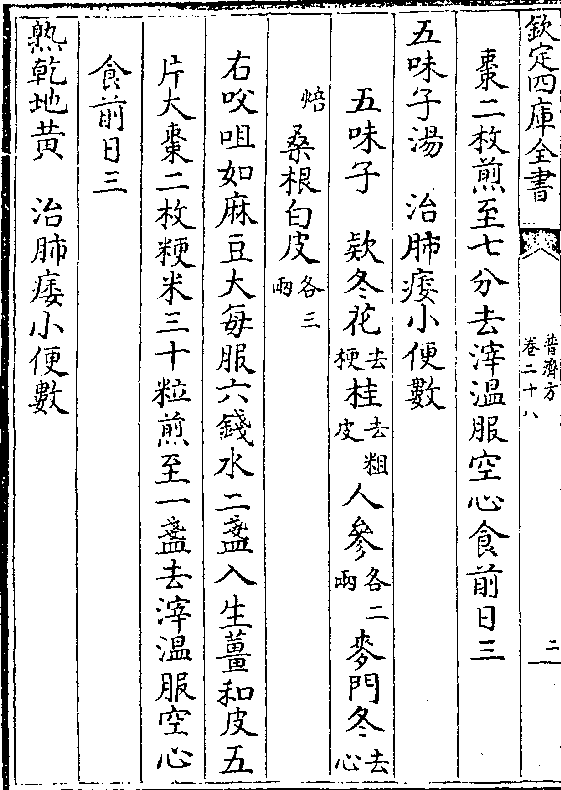 欽定四庫全書
普濟方
卷二十八
二
棗二枚煎至七分去滓溫服空心食前日三
五味子湯　治肺痿小便數
五味子　欵冬花去梗桂去粗皮人參各二兩麥門冬去心
焙桑根白皮各三兩
右㕮咀如麻豆大每服六錢水二盞入生薑和皮五
片大棗二枚粳米三十粒煎至一盞去滓溫服空心
食前日三
熟乾地黃　治肺痿小便數